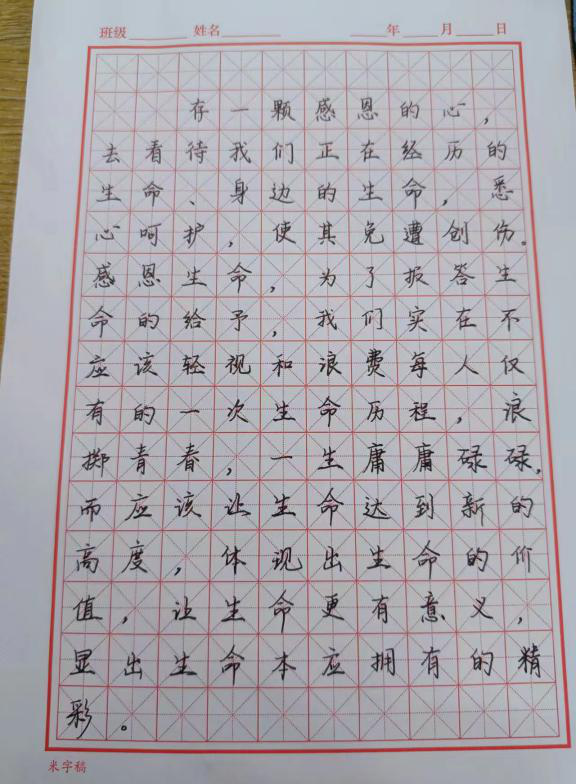 班级 姓名 年 月 日
存一颗感恩的心，
去看待我们正在经历的
生命、身边的生命，悉
心呵护，使其免遭创伤。
感恩生命，为了报答生
命的给予，我们实在不
应该轻视和浪费每人仅
有的一次生命历程，浪
掷青春，一生庸庸碌碌，
而应该让生命达到新的
高度，体现出生命的价
值，让生命更有意义，
显出生命本应拥有的精
彩。
米字稿